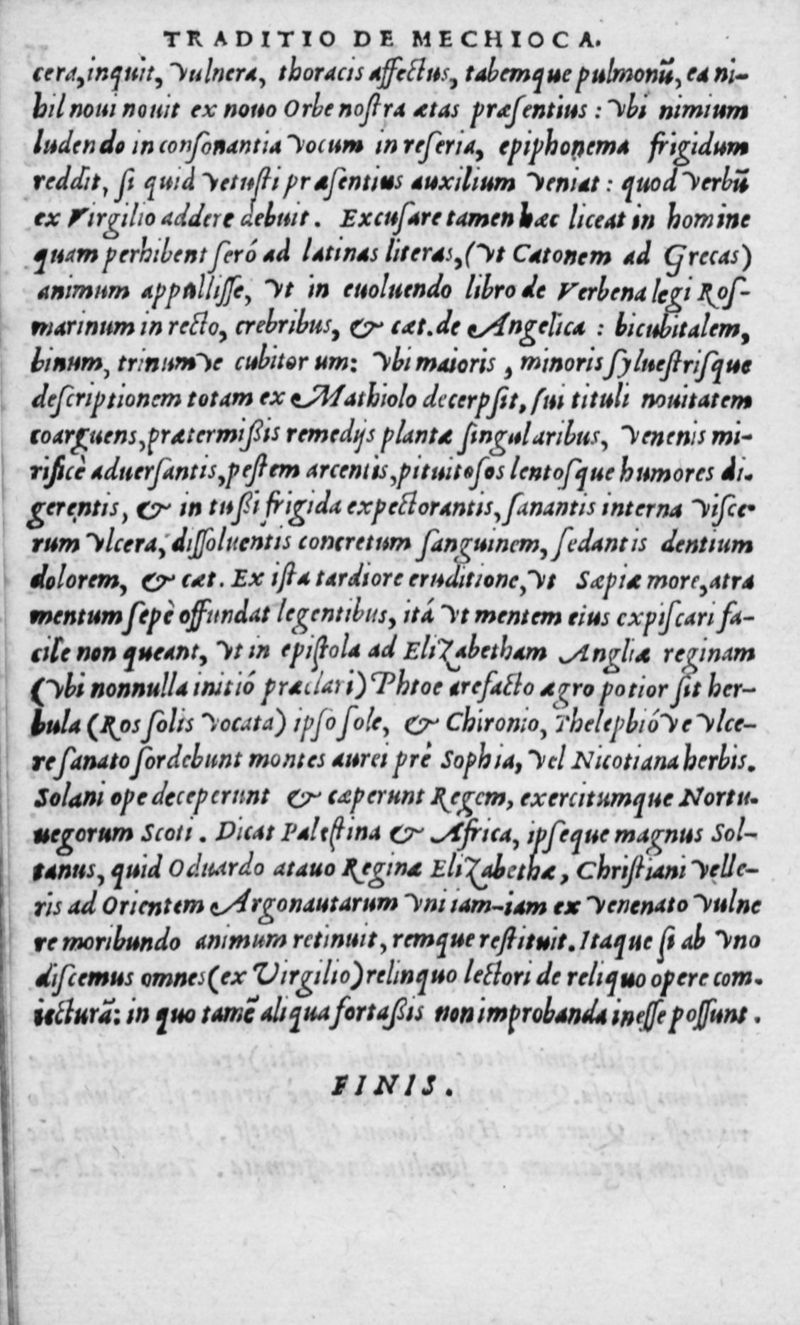 TRADITIO DE MECHIOCA.
cera, inquit, vulnera, thoracis affectus, tabemque pulmonũ, ea ni-
hil noui nouit ex nouo Orbe noſtra ætas præſentius : vbi nimium
ludendo in conſonantia vocum in reſeria, epiphonema frigidum
reddit, ſi quid vetuſti præſentius auxilium veniat : quod verbũ
ex Virgilio addere debuit. Excuſare tamen hæc liceat in homine
quam perhibent ſeró ad latinas literas, (vt Catonem ad Grecas)
animum appulliſſe, vt in euoluendo libro de Verbena legi Roſ-
marinum in recto, crebribus, & cæt. de Angelica : bicubitalem,
binum, trinumve cubitorum: vbi maioris, minoris ſylueſtriſque
deſcriptionem totam ex Mathiolo decerpſit, ſui tituli nouitatem
coarguens, prætermiſsis remedijs plantæ ſingularibus, venenis mi-
rificè aduerſantis, peſtem arcentis, pituitoſos lentoſque humores di-
gerentis, & in tuſsi frigida expectorantis, ſanantis interna viſce-
rum vlcera, diſſoluentis concretum ſanguinem, ſedantis dentium
dolorem, & cæt. Ex iſta tardiore eruditione, vt Sæpiæ more, atra
mentum ſepè offundat legentibus, itá vt mentem eius expiſcari fa-
cile non queant, vt in epiſtola ad Elizabetham Angliæ reginam
(vbi nonnulla initió præclari) Phtoe arefacto agro potior ſit her-
bula (Ros ſolis vocata) ipſo ſole, & Chironio, Thelephió ve vlce-
re ſanato ſordebunt montes aurei præ Sophia, vel Nicotiana herbis.
Solani ope deceperunt & cæperunt Regem, exercitumque Nortu-
uegorum Scoti. Dicat Palæſtina & Africa, ipſeque magnus Sol-
tanus, quid Oduardo atauo Reginæ Elizabethæ, Chriſtiani velle-
ris ad Orientem Argonautarum vni iam-iam ex venenato vulne
re moribundo animum retinuit, remque reſtituit. Itaque ſi ab vno
diſcemus omnes (ex Virgilio) relinquo lectori de reliquo opere com-
iecturã: in quo tamẽ aliqua fortaſsis non improbanda ineſſe poſſunt.
FINIS.